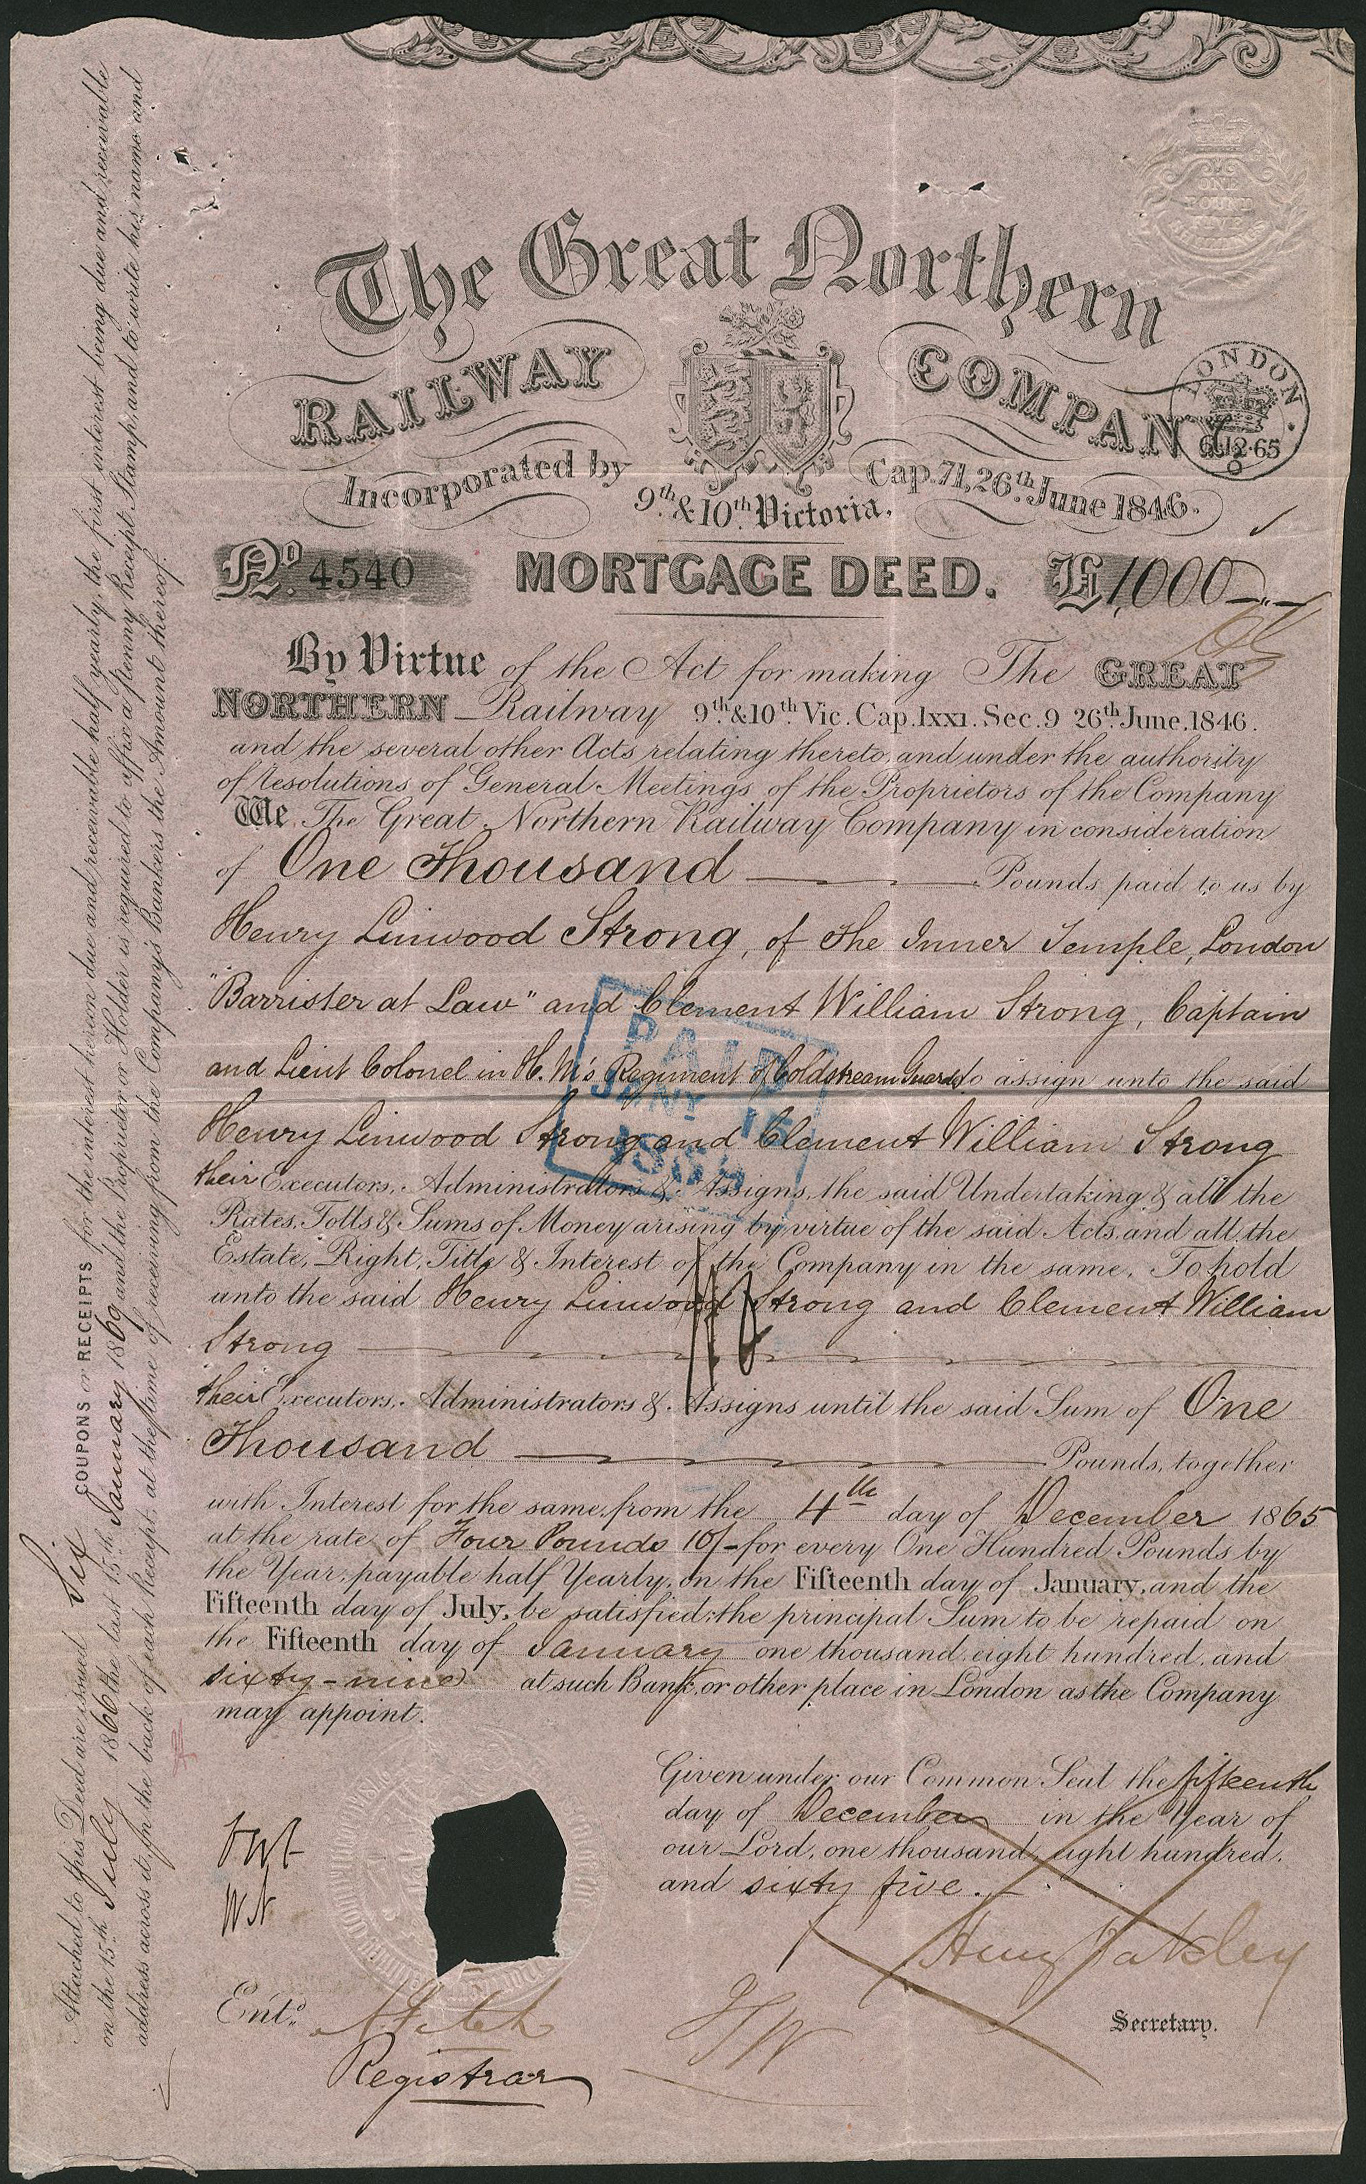 The Great Northern
RAILWAY COMPANY
Incorporated by 9th & 10th Victoria, Cap. 71, 26th June 1846.
ONE
POUND
FIVE
SHILLINGS
LONDON
6.12.65
No. 4540 MORTGAGE DEED. £1,000
By Virtue of the Act for making The GREAT
NORTHERN Railway 9th & 10th Vic. Cap. lxxi. Sec. 9 26th June. 1846.
and the several other Acts relating thereto, and under the authority
of resolutions of General Meetings of the Proprietors of the Company
We, The Great Northern Railway Company in consideration
of One Thousand Pounds, paid to us by
Henry Linwood Strong, of The Inner Temple, London
"Barrister at Law" and Clement William Strong, Captain
and Lieut Colonel in H.M's Regiment of Coldstream Guards do assign unto the said
Henry Linwood Strong and Clement William Strong
their Executors, Administrators & Assigns, the said Undertaking & all the
Rates, Tolls & Sums of Money arising by virtue of the said Acts, and all the
Estate, Right, Title & Interest of the Company in the same. To hold
unto the said Henry Linwood Strong and Clement William
Strong
their Executors, Administrators & Assigns until the said Sum of One
Thousand Pounds, together
with Interest for the same, from the 4th day of December 1865
at the rate of Four Pounds 10/- for every One Hundred Pounds by
the Year, payable half Yearly, on the Fifteenth day of January, and the
Fifteenth day of July, be satisfied: the principal Sum to be repaid on
the Fifteenth day of January one thousand eight hundred, and
sixty-nine at such Bank, or other place in London as the Company
may appoint.
PAID
JANY 15
Given under our Common Seal the fifteenth
day of December in the Year of
our Lord, one thousand, eight hundred,
and sixty five.
Henry Oakley
Secretary.
Entd.
Registrar
Attached to this Deed are issued Six COUPONS or RECEIPTS for the interest hereon due and receivable half yearly, the first interest being due and receivable
on the 15th July 1866 the last 15th January 1869 and the Proprietor or Holder is required to affix a Penny Receipt Stamp, and to write his name and
address across it, on the back of each Receipt, at the time of receiving from the Company's Bankers the Amount thereof.